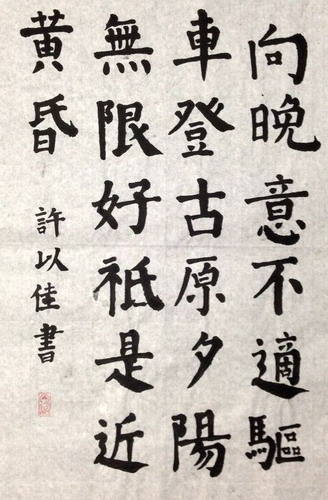 向晚意不適驅
車登古原夕陽
無限好祗是近
黃昏
許以佳書